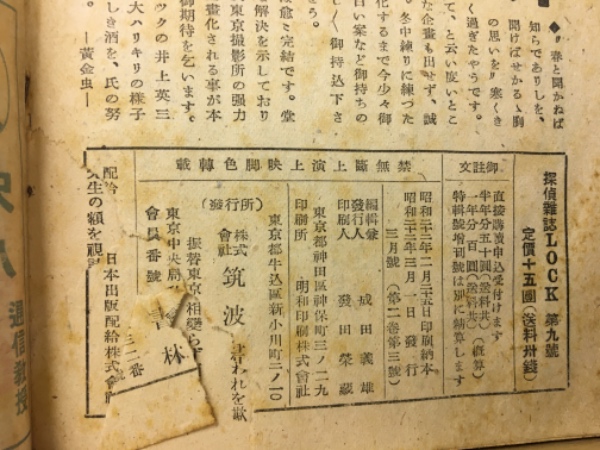 ◆『春と聞かねば
知らでありしを、
聞けばせかるゝ胸
の思いを』寒くき
く過ぎたやうです。
て、と云い度いとこ
な企畫も出せず、誠
。冬中練りに練つた
化するまで今少々御
白い案など御持ちの
く御持込下さ
う。
は愈ミ完結です。堂
解決を示しており
東京撮影所の强力
畫化される事が本
御期待を乞います。
ックの井上英三
大ハリキリの樣子
しき酒を、氏の努
。―黄金虫―
探偵雜誌LOCK 第九號
定價十五圓(送料卅錢)
御註文
直接購讀申込受付けます
半年分五十圓(送料共)
一年分百圓(送料共)(概算)
特輯號增刊號は別に精算します
禁無斷上演上映脚色轉載
昭和二十二年二月二十五日印刷納本
昭和二十二年三月一日發行
三月號(第二卷第三號)
編輯兼發行人 成田義雄
印刷人 發田榮藏
東京都神田區神保町三ノ二九
印刷所 明和印刷株式會社
東京都牛込區新小川町三ノ一〇
(發行所) 株式會社 筑波書林
振替東京
相變らず
われを歎
東京中央局
會員番號
三二番
配給 日本出版配給株式會
人生の額を視
通信教授